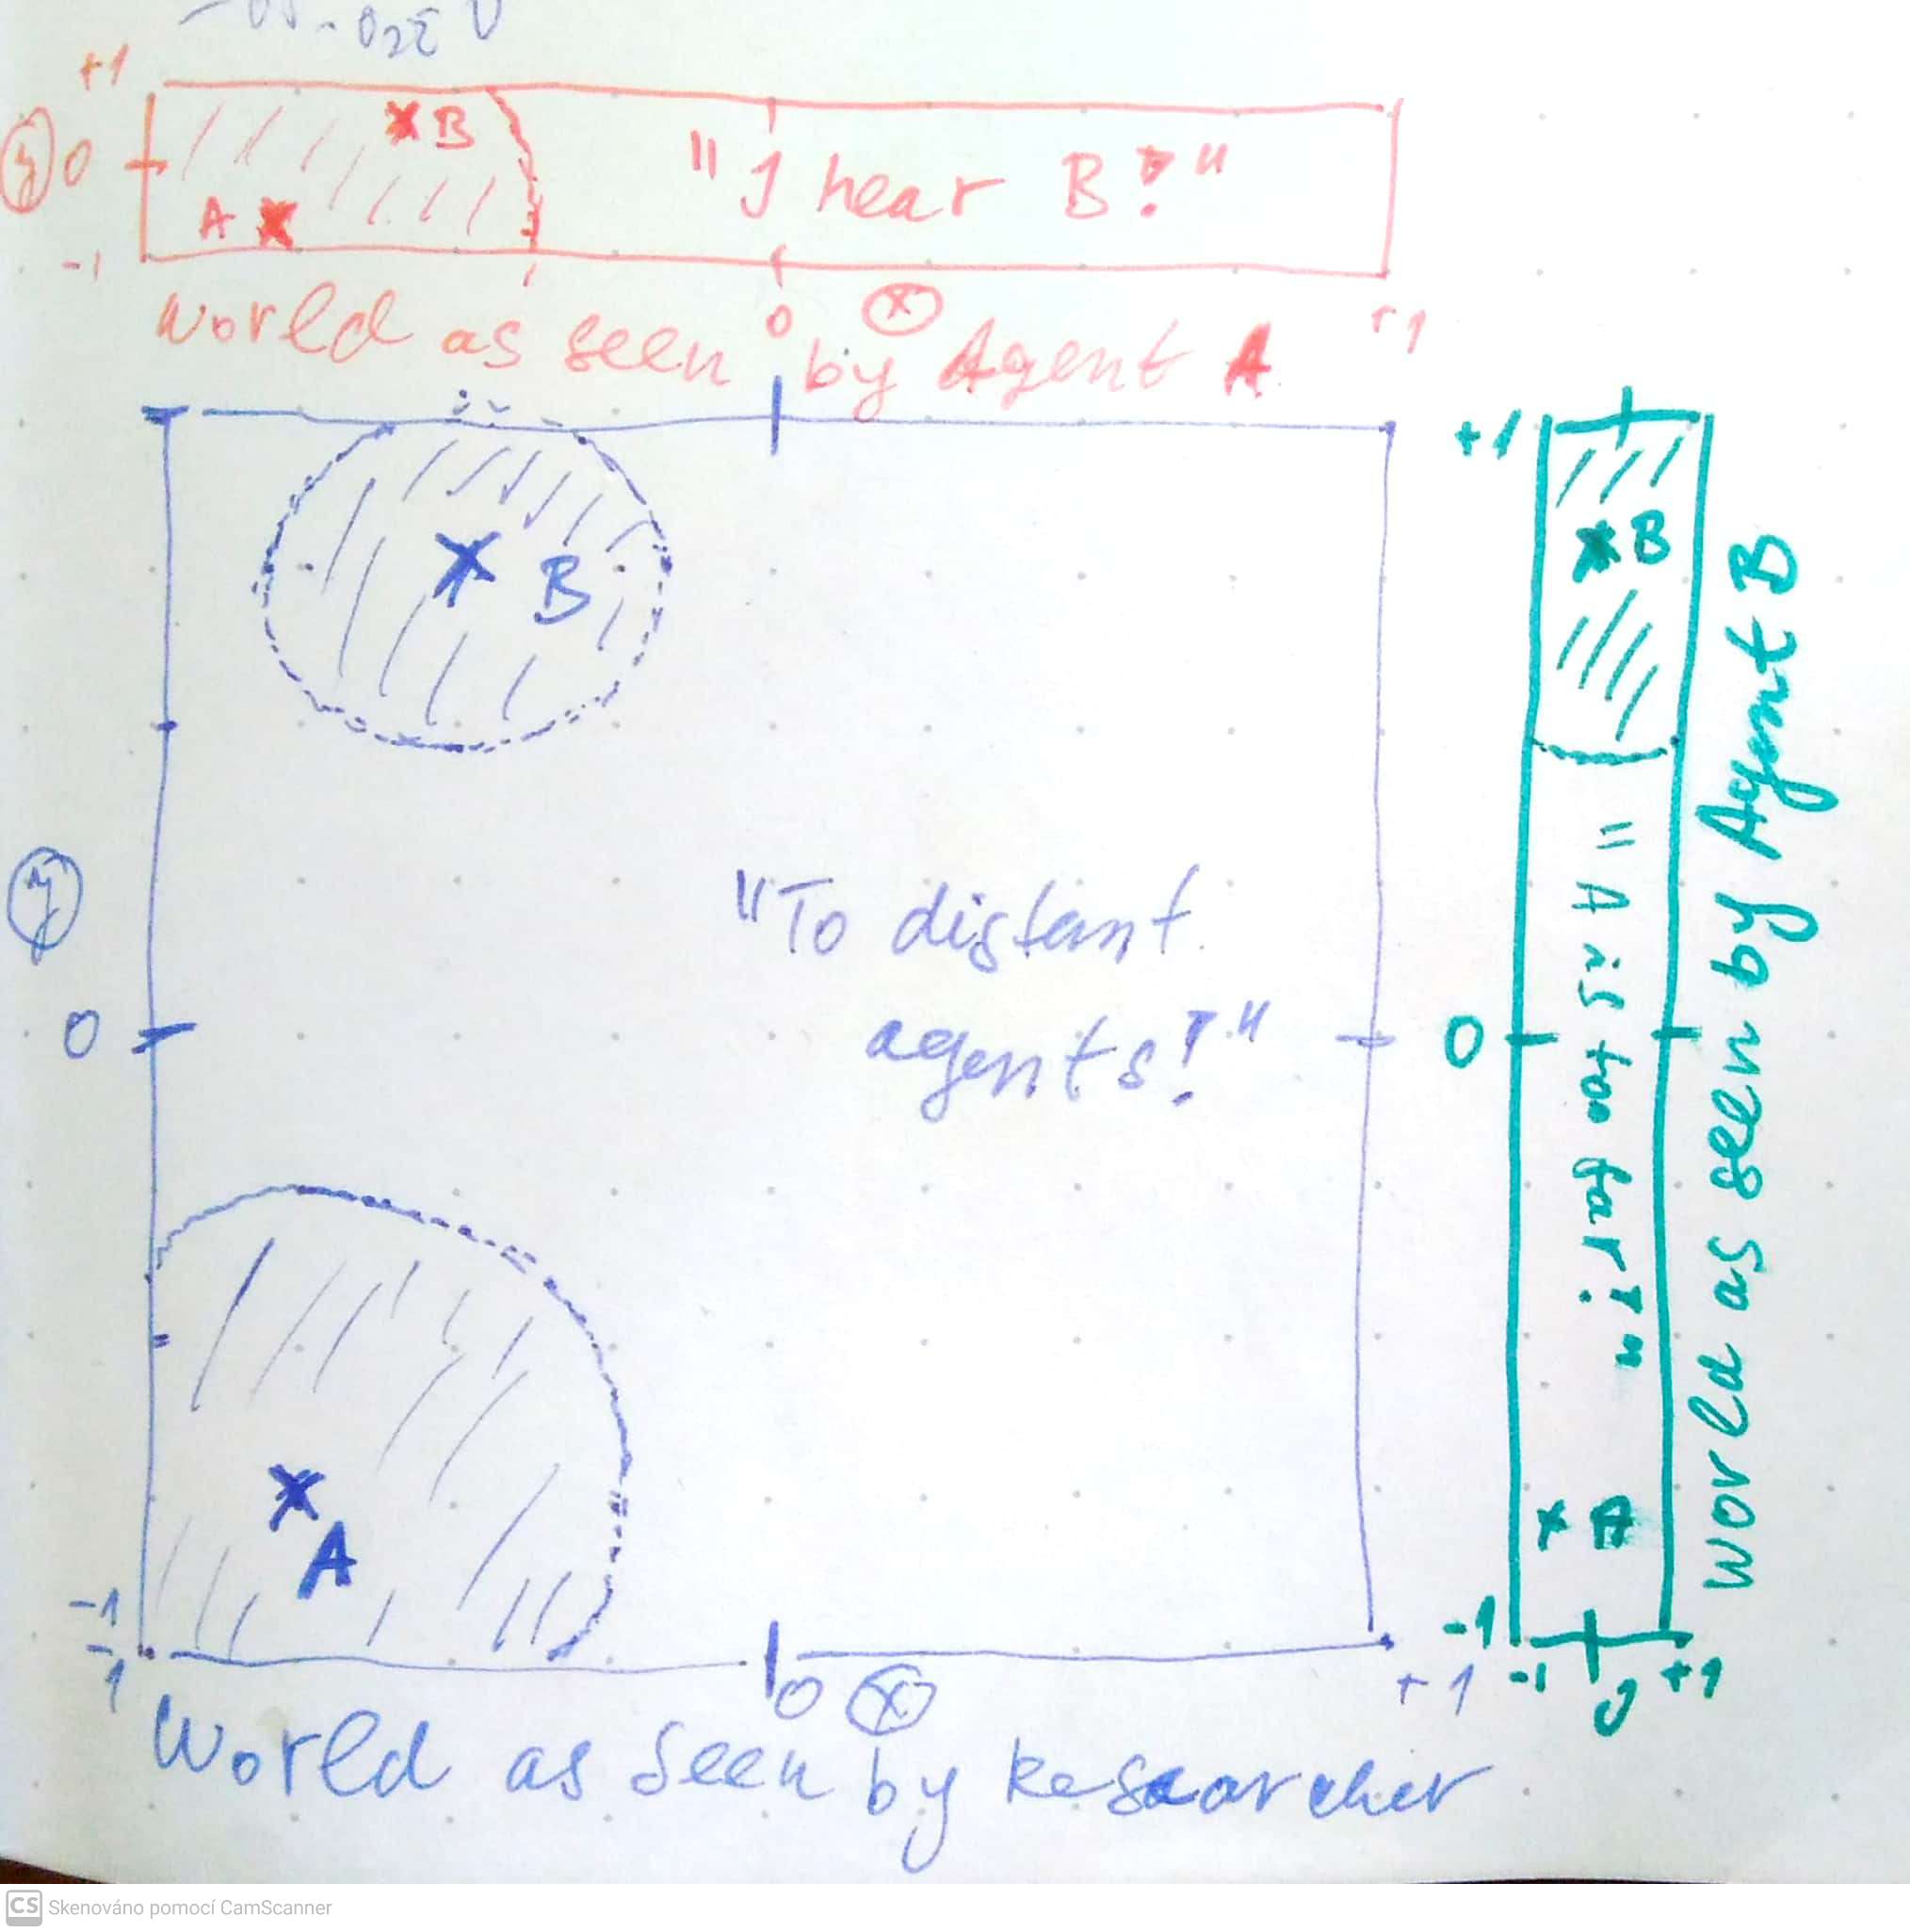 +1
y
0
-1
A
B
"I hear B!"
0
x
+1
World as seen by Agent A
B
"To distant
agents!"
A
y
0
-1
-1
0
x
+1
World as seen by Researcher
+1
0
-1
-1
0
+1
B
"A is too far!"
A
World as seen by Agent B
CS Skenováno pomocí CamScanner